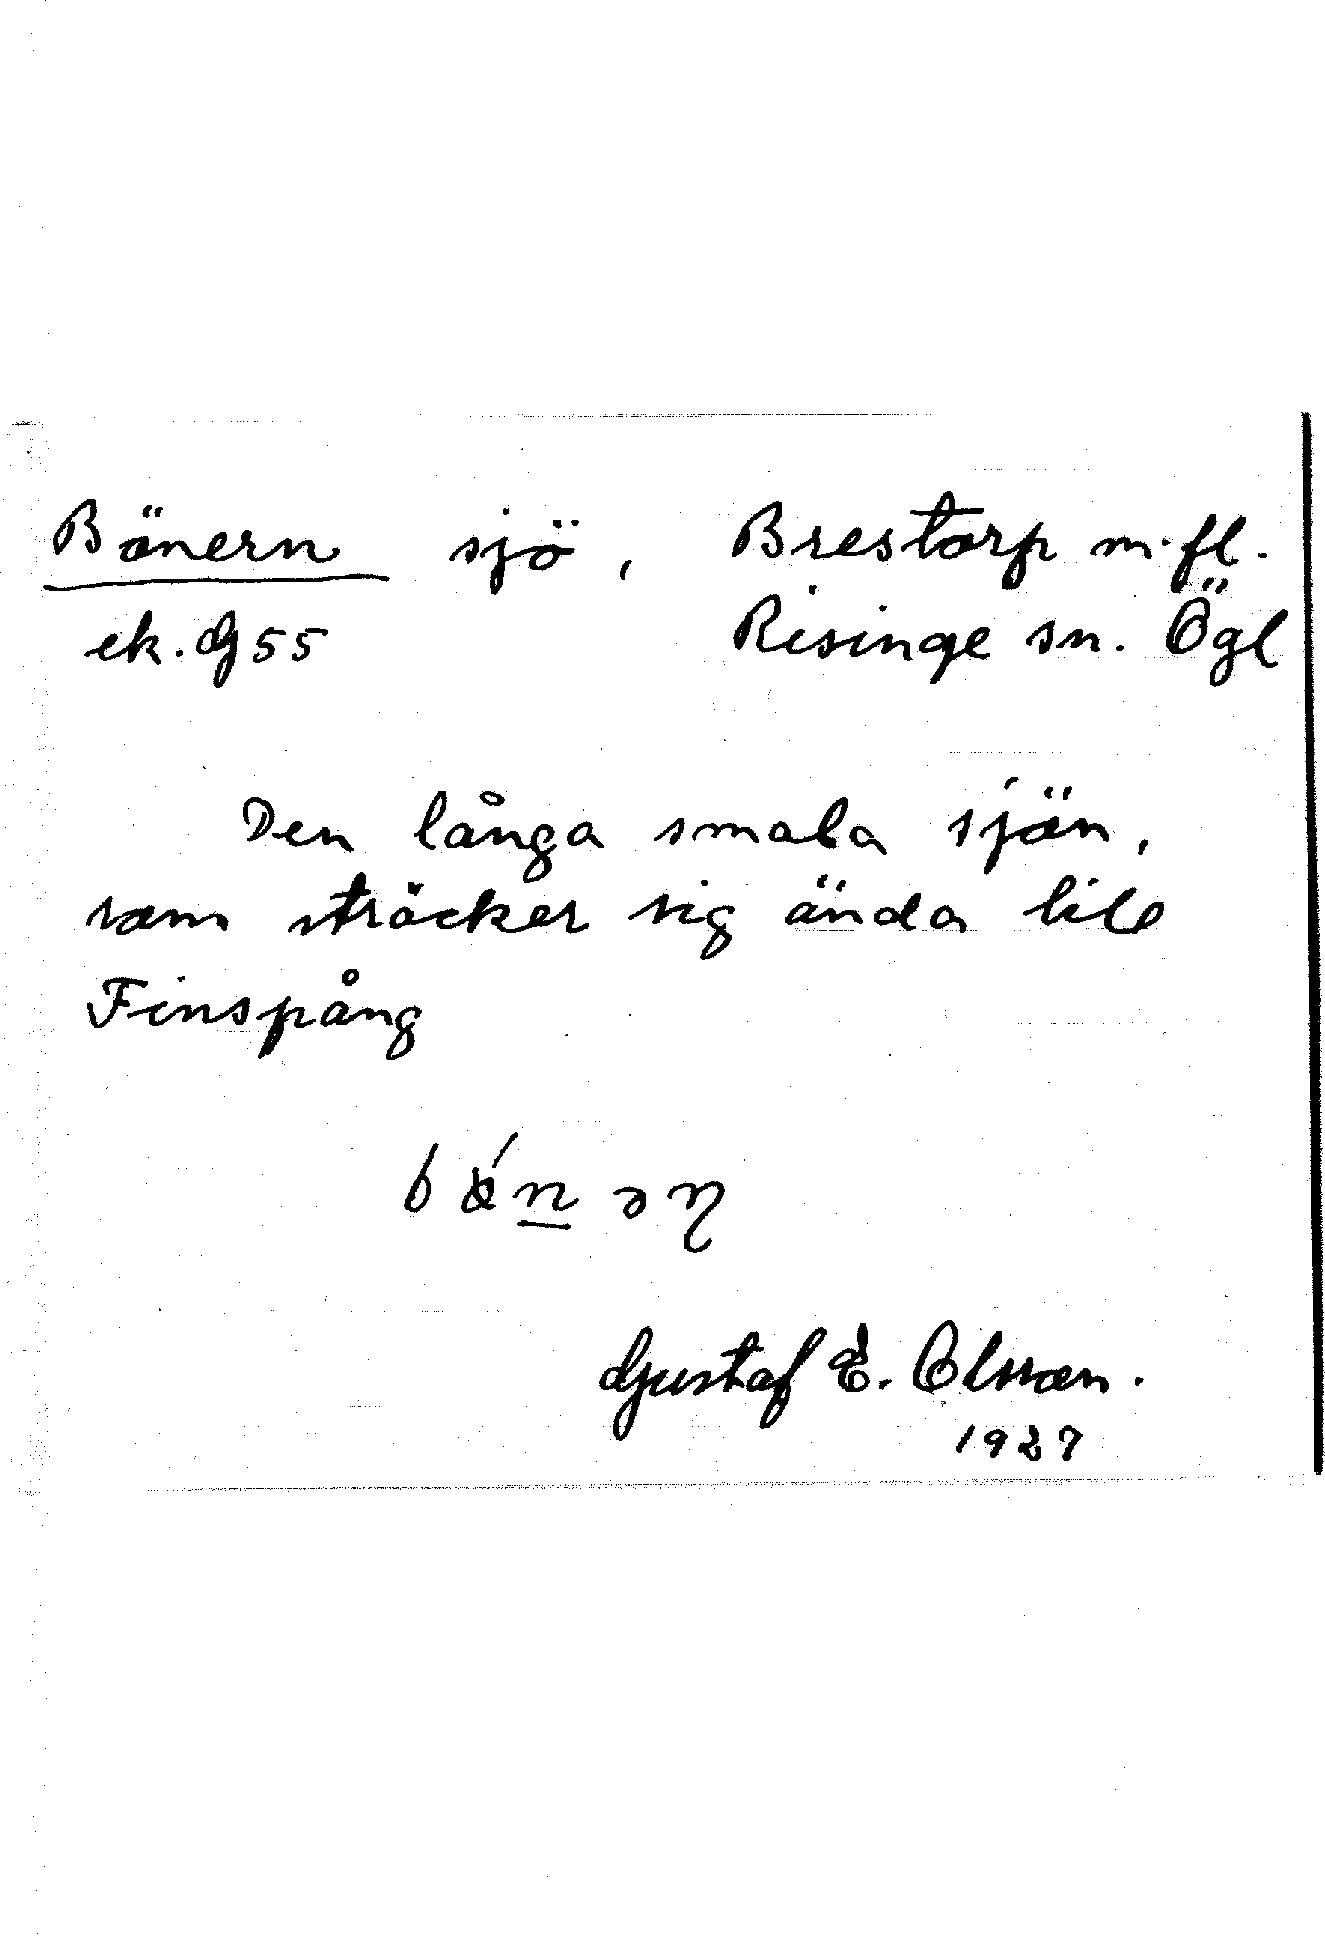 Bönern sjö, Brestorp m.fl.
ek. G 55 Risinge sn. Ögl
Den långa smala sjön,
som sträcker sig ända till
Finspång
Gustaf E. Olsson.
1927